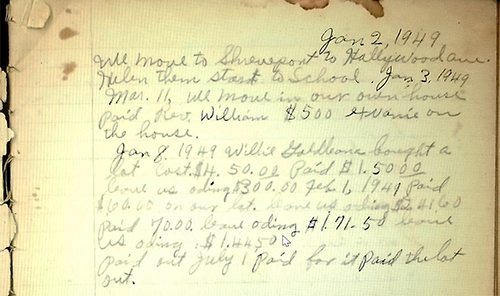 Jan 2, 1949
We move to Shreveport to Hollywood ave.
Helen them start to School. Jan 3, 1949
Mar. 11, We move in our own house
Paid Rev. William $500 advance on
the house.
Jan 8 1949 Willie bought a
lot cost $4.50.00 Paid $1.5000
leave us oding $300.00 Feb 1, 1949 Paid
$60.00 on our lot. leave us oding $2.4160
Paid 70.00 leave oding $1.71.50 leave
us oding $1.4450
Paid out July 1 Paid for it Paid the lot
out.